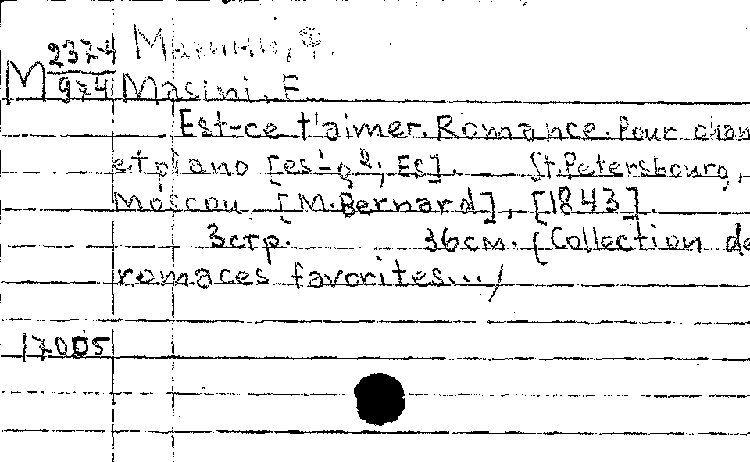 Мазини, Ф.
М 237-4/974 Masini, F.
Est-ce t'aimer. Romance. Pour chan
et piano [es¹-g²; Es]. St. Petersbourg,
Moscou [M. Bernard], [1843].
3 стр. 36 см. (Collection de
romaces favorites...)
17005